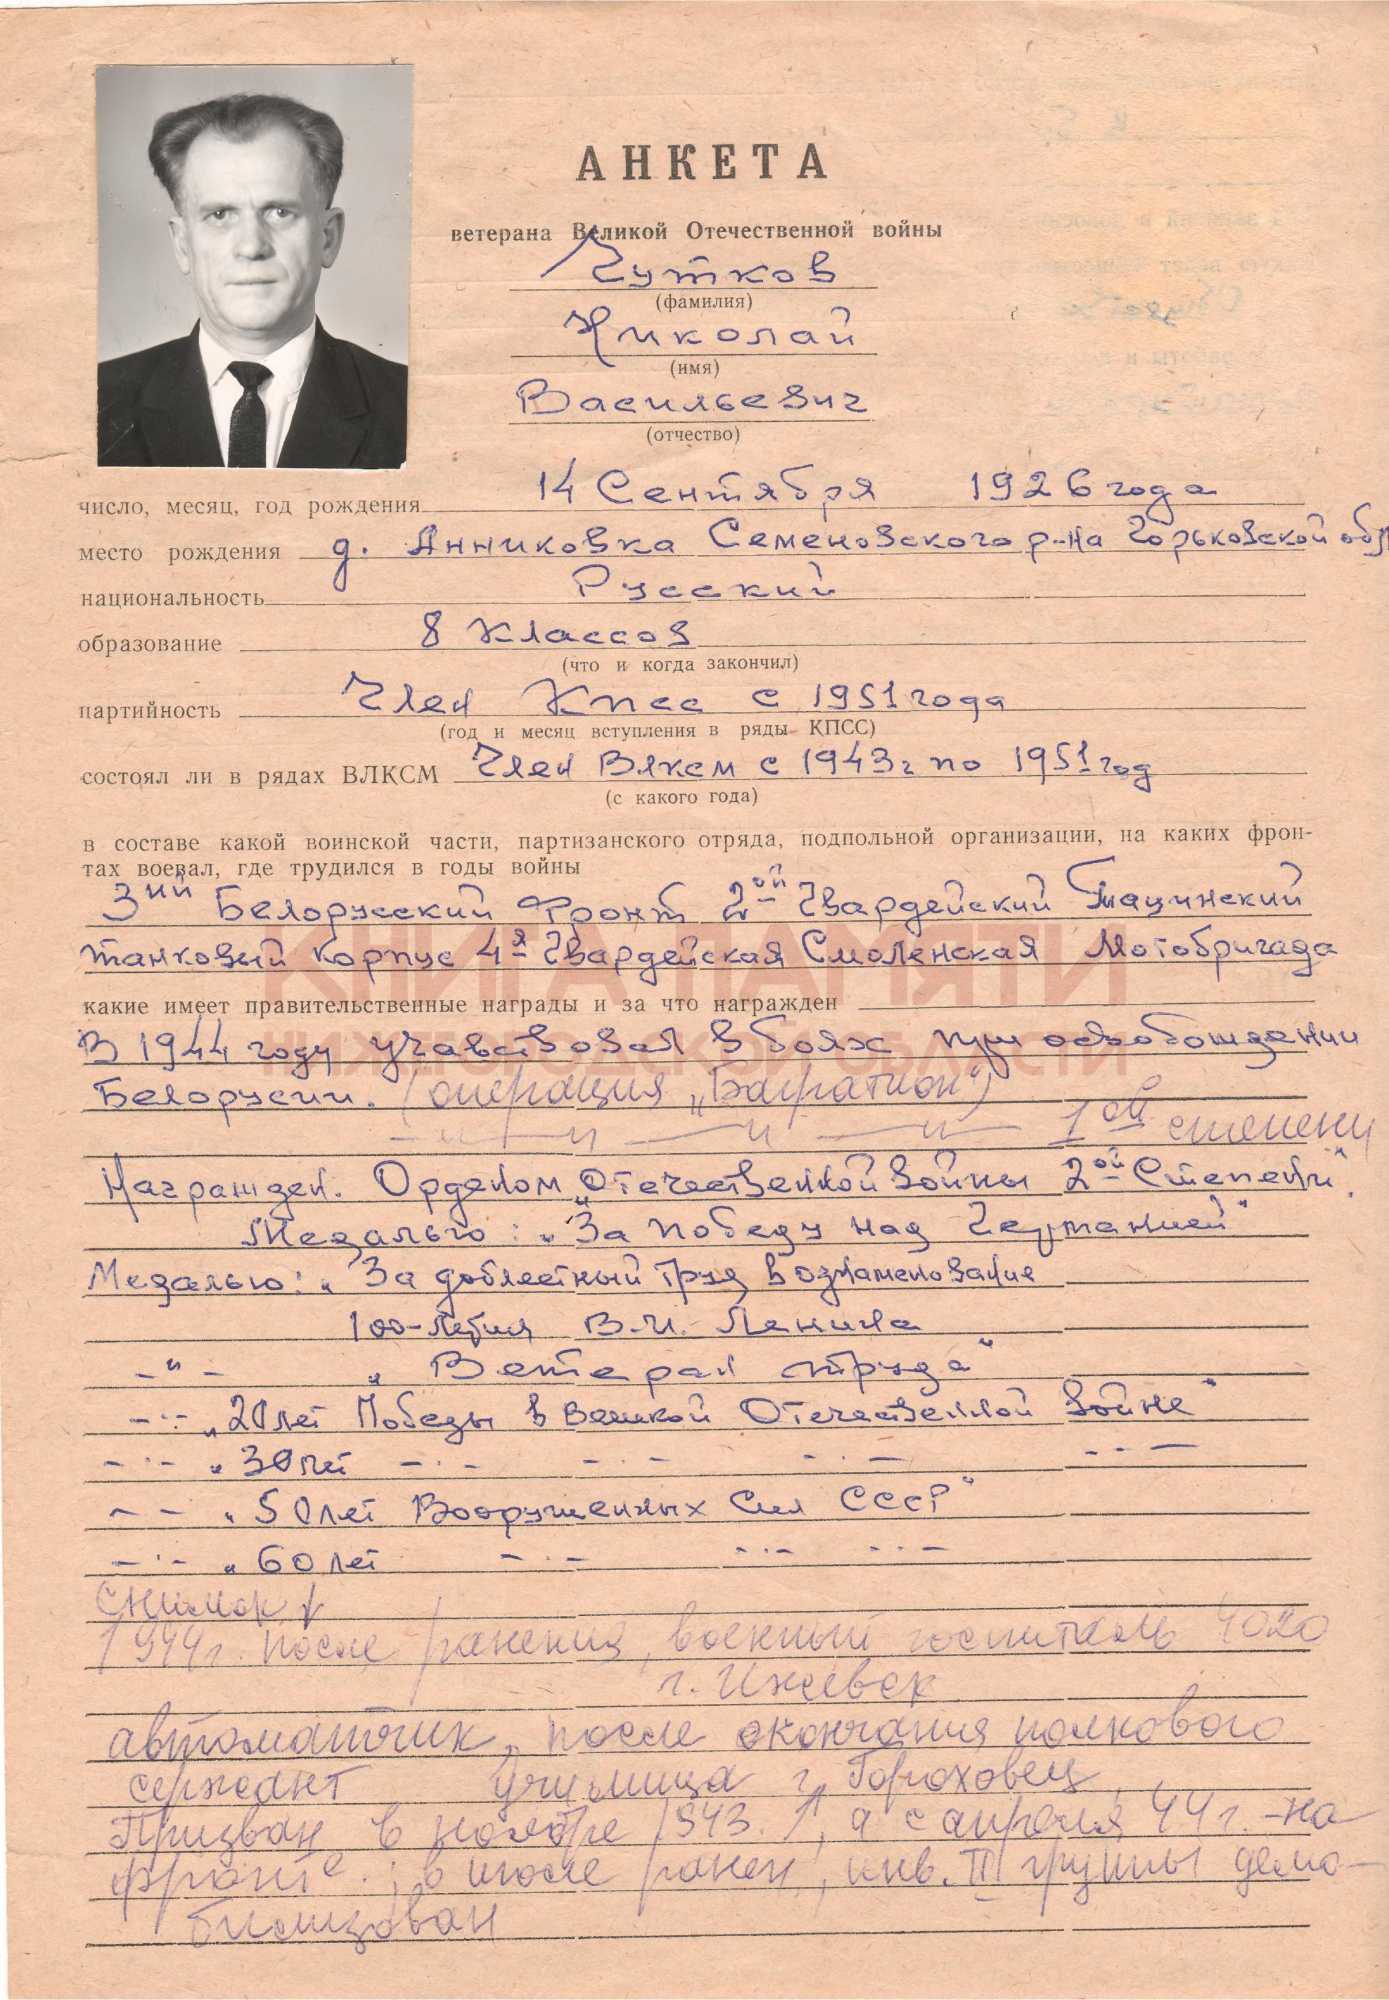 АНКЕТА
ветерана Великой Отечественной войны
Чутков
(фамилия)
Николай
(имя)
Васильевич
(отчество)
число, месяц, год рождения 14 Сентября 1926 года
место рождения д. Анниковка Семеновского р-на Горьковской обл
национальность Русский
образование 8 классов
(что и когда закончил)
партийность Член Кпсс с 1951 года
(год и месяц вступления в ряды КПСС)
состоял ли в рядах ВЛКСМ Член Влксм с 1943г по 1951 год
(с какого года)
в составе какой воинской части, партизанского отряда, подпольной организации, на каких фрон-
тах воевал, где трудился в годы войны
3ий Белорусский Фронт 2ой Гвардейский Тацинский
танковый корпус 4я Гвардейская Смоленская Мотобригада
КНИГА ПАМЯТИ
какие имеет правительственные награды и за что награжден
НИЖЕГОРОДСКОЙ ОБЛАСТИ
В 1944 году учавствовал в боях при освобождении
Белоруссии. (операция „Багратион")
—„— —„— —„— 1ой степени
Награжден. Орденом „Отечественной войны 2ой Степени".
Медалью: „За победу над Германией"
Медалью: „За доблестный труд в ознаменование
100-летия В.И. Ленина
-"- „Ветеран труда"
-·- „20 лет Победы в Великой Отечественной войне"
-·- „30 лет -·- -·- -·- -·-
-- „50 лет Вооруженных Сил СССР"
-·- „60 лет -·- -·- -·-
Снимок
1944г. после ранения, военный госпиталь 4020
г. Ижевск
автоматчик, после окончания полкового
сержант училища г. Гороховец
Призван в ноябре 1943 г, а с апреля 44 г. - на
фронте; в июле ранен, инв. III группы демо-
билизован